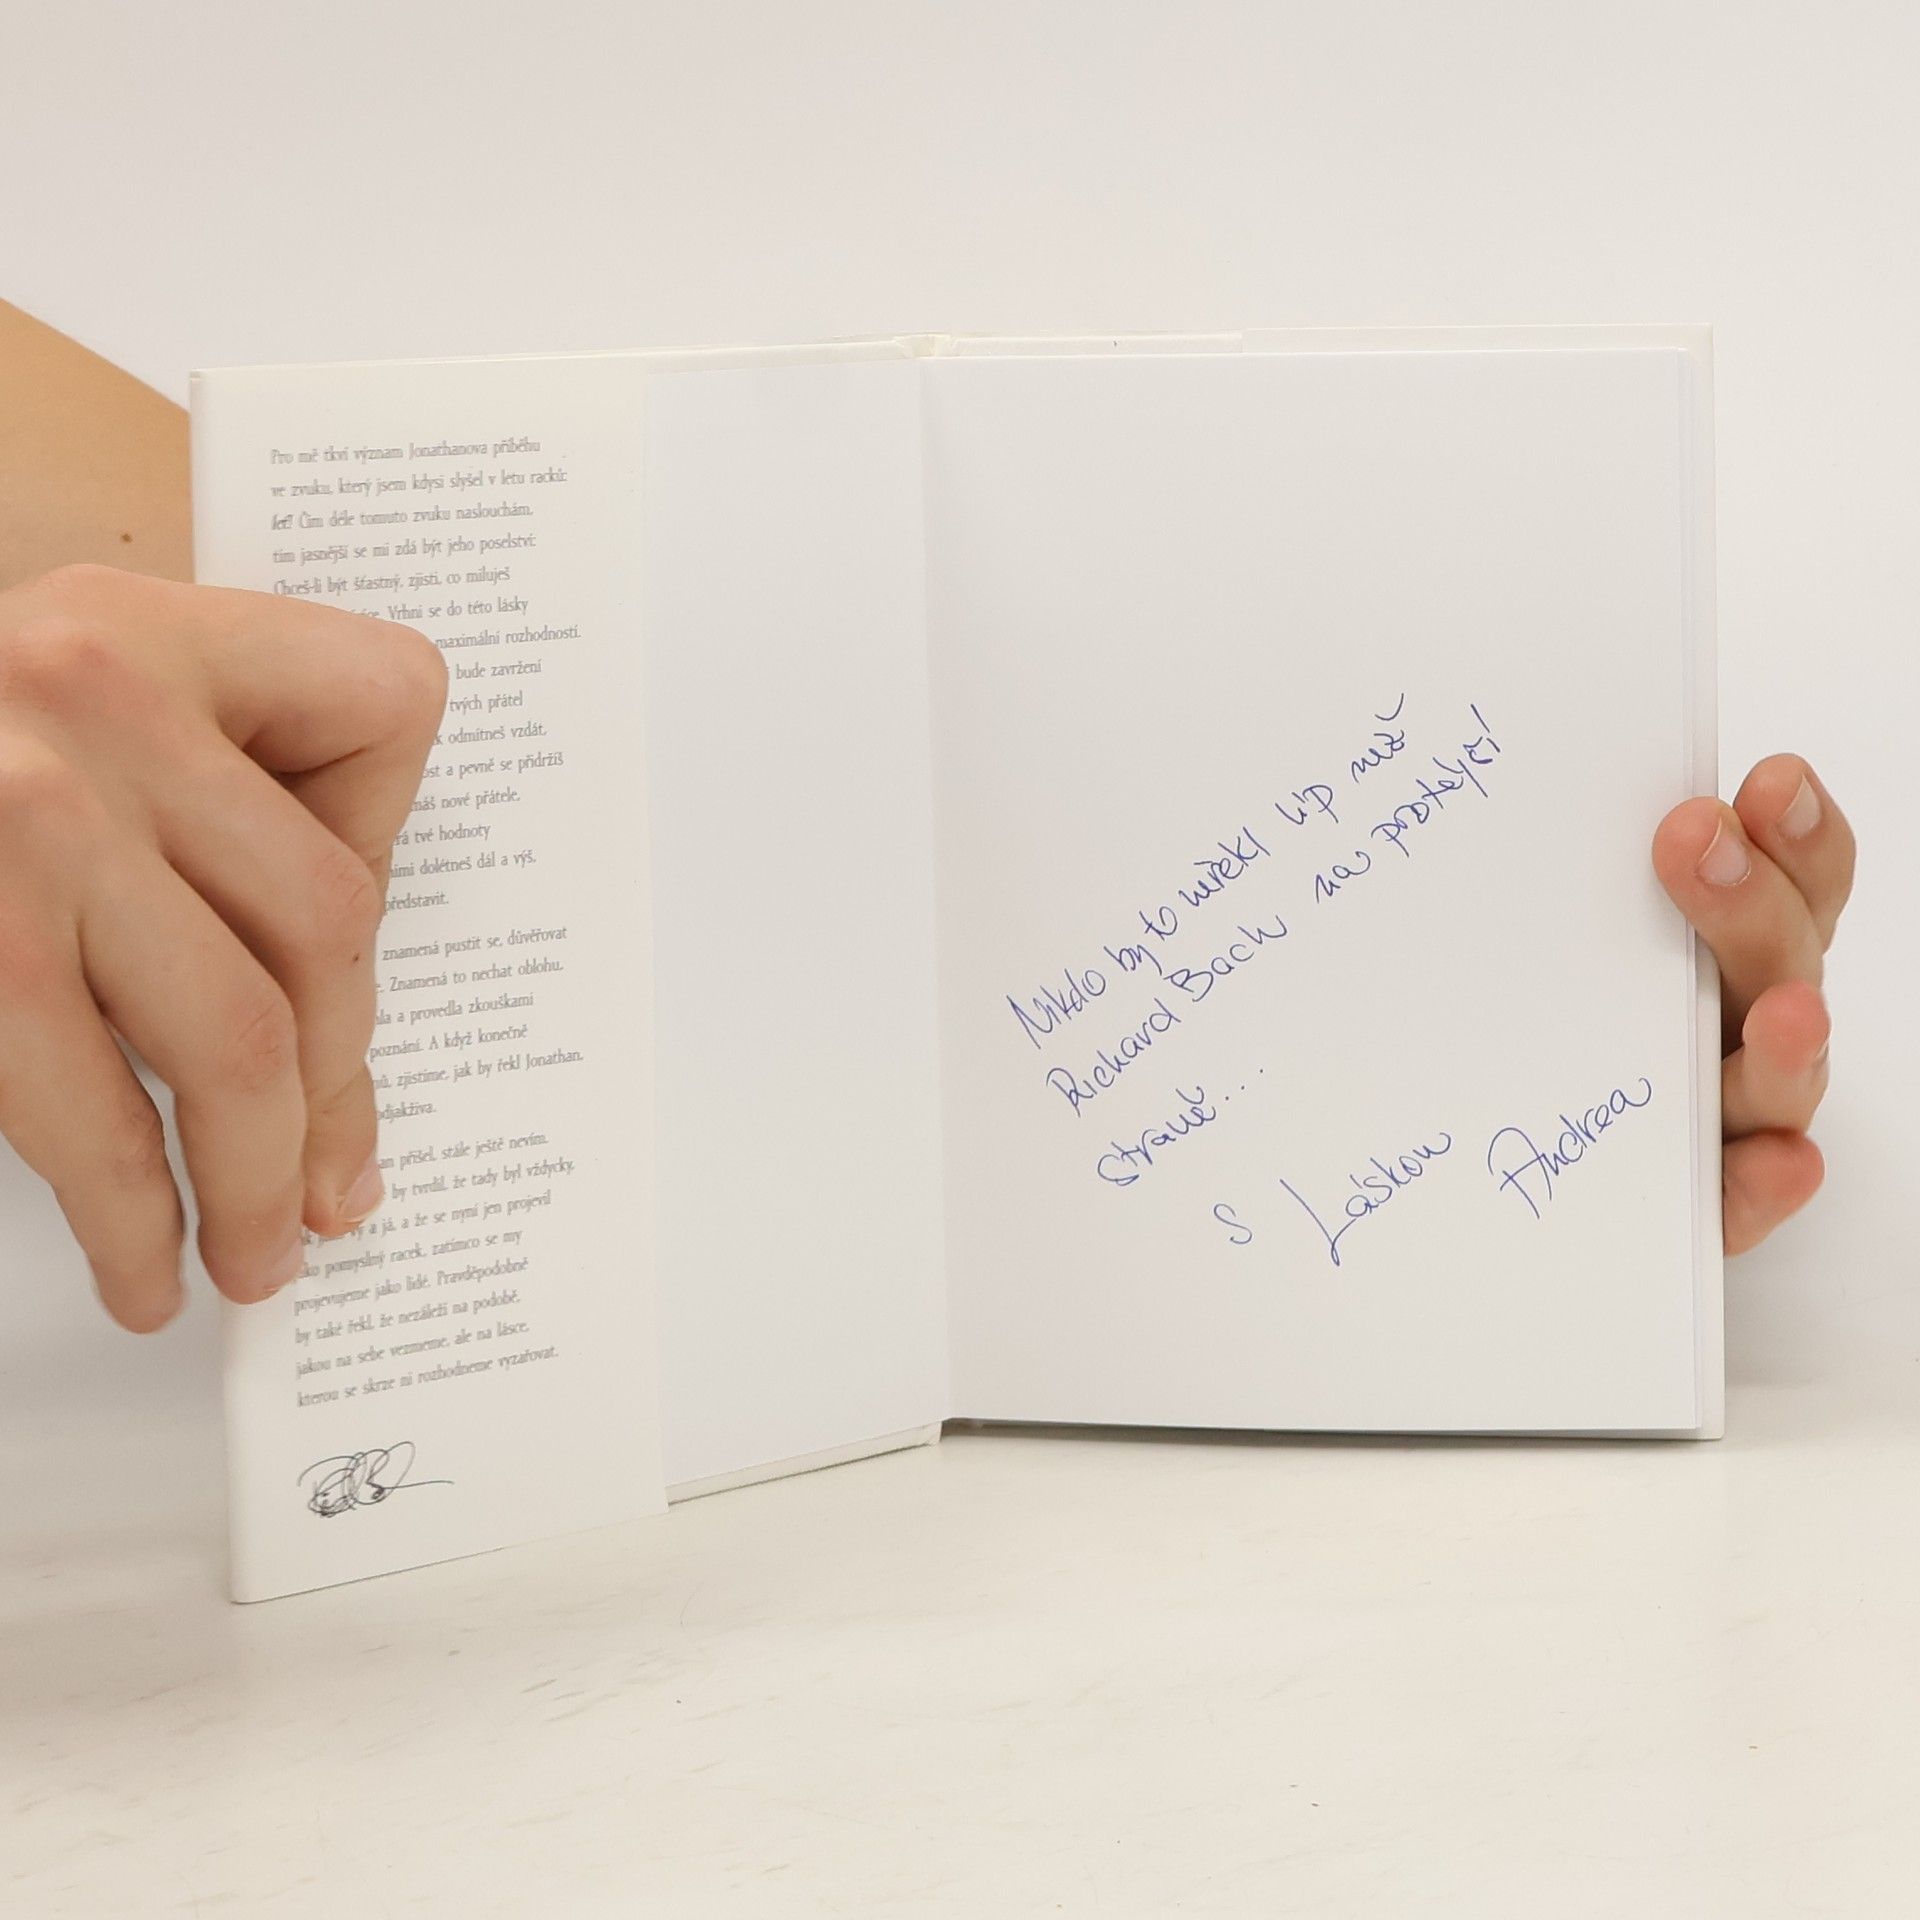 Pro mě tkví význam Jonathanova příběhu
ve zvuku, který jsem kdysi slyšel v letu racků:
leť! Čím déle tomuto zvuku naslouchám,
tím jasnější se mi zdá být jeho poselství:
Chceš-li být šťastný, zjisti, co miluješ
Vrhni se do této lásky
maximální rozhodností.
bude zavržení
tvých přátel
odmítneš vzdát,
a pevně se přidržíš
nové přátele,
tvé hodnoty
dolétneš dál a výš,
představit.
znamená pustit se, důvěřovat
Znamená to nechat oblohu,
a provedla zkouškami
poznání. A když konečně
zjistíme, jak by řekl Jonathan,
odjakživa.
přišel, stále ještě nevím.
by tvrdil, že tady byl vždycky,
vy a já, a že se nyní jen projevil
jako pomyslný racek, zatímco se my
projevujeme jako lidé. Pravděpodobně
by také řekl, že nezáleží na podobě,
jakou na sebe vezmeme, ale na lásce,
kterou se skrze ni rozhodneme vyzařovat.
Nikdo by to neřekl líp než
Richard Bach na protější
straně...
S Láskou Andrea